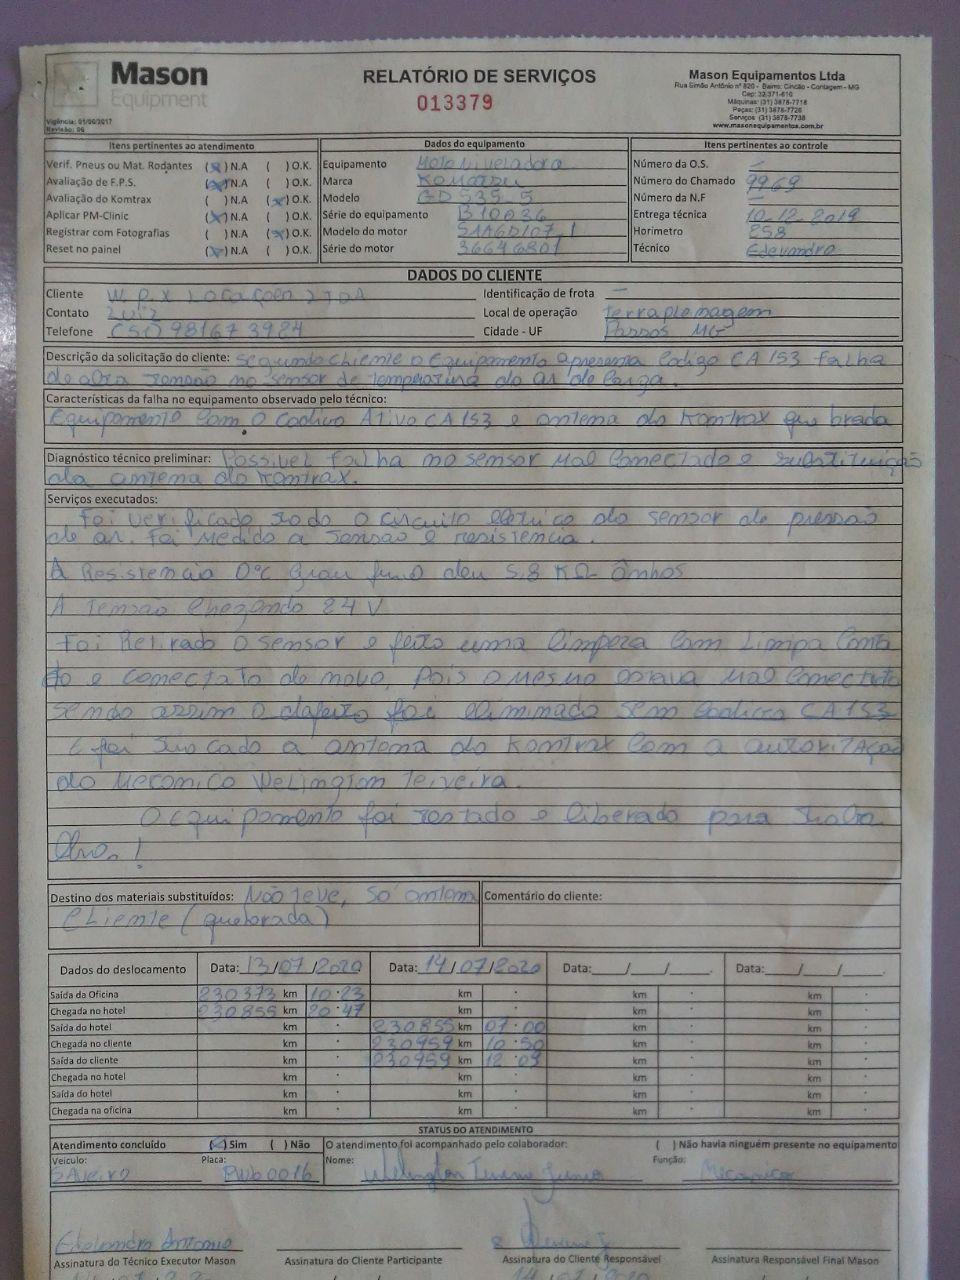 Mason
Equipment
Vigência: 01/06/2017
Revisão: 06
RELATÓRIO DE SERVIÇOS
013379
Mason Equipamentos Ltda
Rua Simão Antônio nº 820 - Bairro: Cincão - Contagem - MG
Cep: 32.371-610
Máquinas: (31) 3878-7718
Peças: (31) 3878-7726
Serviços: (31) 3878-7738
www.masonequipamentos.com.br
Itens pertinentes ao atendimento
Verif. Pneus ou Mat. Rodantes (x) N.A ( ) O.K.
Avaliação de F.P.S. (x) N.A ( ) O.K.
Avaliação do Komtrax ( ) N.A (x) O.K.
Aplicar PM-Clinic (x) N.A ( ) O.K.
Registrar com Fotografias ( ) N.A (x) O.K.
Reset no painel (x) N.A ( ) O.K.
Dados do equipamento
Equipamento Motoniveladora
Marca Komatsu
Modelo GD535-5
Série do equipamento B10036
Modelo do motor SAA6D107-1
Série do motor 36646801
Itens pertinentes ao controle
Número da O.S. —
Número do Chamado 9969
Número da N.F —
Entrega técnica 10-12-2019
Horímetro 258
Técnico Edevandro
DADOS DO CLIENTE
Cliente W.P.X Locações LTDA
Contato Luiz
Telefone (51) 981673984
Identificação de frota —
Local de operação terraplemagem
Cidade - UF Passos MG
Descrição da solicitação do cliente: Segundo cliente o Equipamento apresenta Codigo CA153 falha
de alta tensão no sensor de temperatura do ar de Carga.
Características da falha no equipamento observado pelo técnico:
Equipamento Com o Codico Ativo CA153 e antena do Komtrax quebrada
Diagnóstico técnico preliminar: Possivel falha no sensor mal Conectado e substituição
da antena do Komtrax.
Serviços executados:
foi verificado todo o circuito eletrico do sensor de pressão
de ar. foi medido a tensão e resistencia.
A Resistencia 0°C Grau deu 5,8 KΩ
A Tensão Chegando 24 V
foi Retirado o sensor e feito uma limpeza Com Limpa Conta
to e conectato de novo, pois o mesmo estava mal Conectato
sendo assim o defeito foi eliminado sem Codico CA153
E foi trocado a antena do Komtrax Com a autorização
do Mecanico Welington Teixeira.
O equipamento foi testado e liberado para traba
lho. !
Destino dos materiais substituídos: Não teve, só antena
Cliente (quebrada)
Comentário do cliente:
Dados do deslocamento Data: 13/07/2020 Data: 14/07/2020 Data:___/___/___. Data:___/___/___.
Saída da Oficina 230373 km 10:23 km km km
Chegada no hotel 230855 km 20:47 km km km
Saída do hotel km 230855 km 07:00 km km
Chegada no cliente km 230959 km 10:50 km km
Saída do cliente km 230959 km 12:09 km km
Chegada no hotel km km km km
Saída do hotel km km km km
Chegada na oficina km km km km
STATUS DO ATENDIMENTO
Atendimento concluído (x) Sim ( ) Não O atendimento foi acompanhado pelo colaborador: ( ) Não havia ninguém presente no equipamento
Veículo: Saveiro Placa: Nome: Welington Função: Mecanico
Antonio
Assinatura do Técnico Executor Mason Assinatura do Cliente Participante Assinatura do Cliente Responsável Assinatura Responsável Final Mason